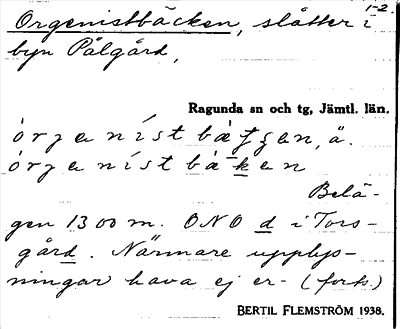 1-2.
Orgenistbäcken, slåtter i
byn Pålgård,
Ragunda sn och tg, Jämtl. län.
ȯ r g e n í s t b ä
ȯ r g e n í s t b ä k e n
Belä-
gen 1300 m. ONO d i Tors-
gård. Närmare upplys-
ningar hava ej er- (forts.)
BERTIL FLEMSTRÖM 1938.